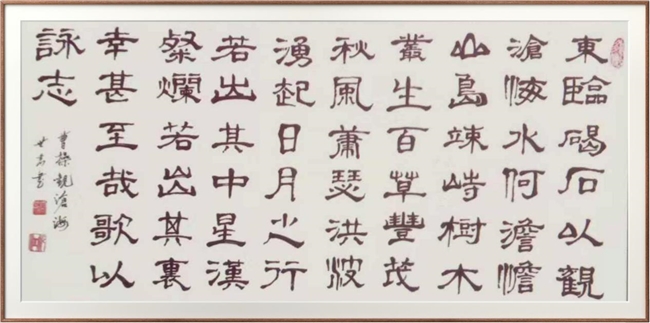 東臨碣石以觀
滄海水何澹澹
山島竦峙樹木
叢生百草豐茂
秋風蕭瑟洪波
湧起日月之行
若出其中星漢
粲爛若出其裏
幸甚至哉歌以
詠志
曹操觀滄海
書